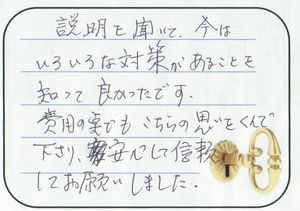 説明を聞いて、今は
いろいろな対策があることを
知って良かったです.
費用の実でもこちらの思いをくんで
下さり、安心して信頼
してお願いしました.